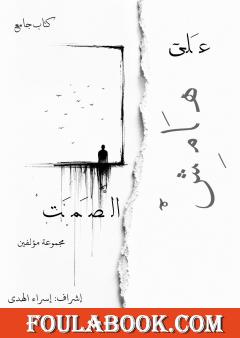 كتاب جامع
على
هامش
الصمت
مجموعة مؤلفين
إشراف: إسراء الهدى
FOULABOOK.COM